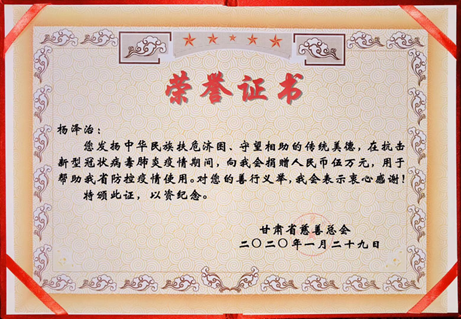 荣誉证书
杨泽治：
您发扬中华民族扶危济困、守望相助的传统美德，在抗击
新型冠状病毒肺炎疫情期间，向我会捐赠人民币伍万元，用于
帮助我省防控疫情使用。对您的善行义举，我会表示衷心感谢！
特颁此证，以资纪念。
甘肃省慈善总会
二〇二〇年一月二十九日